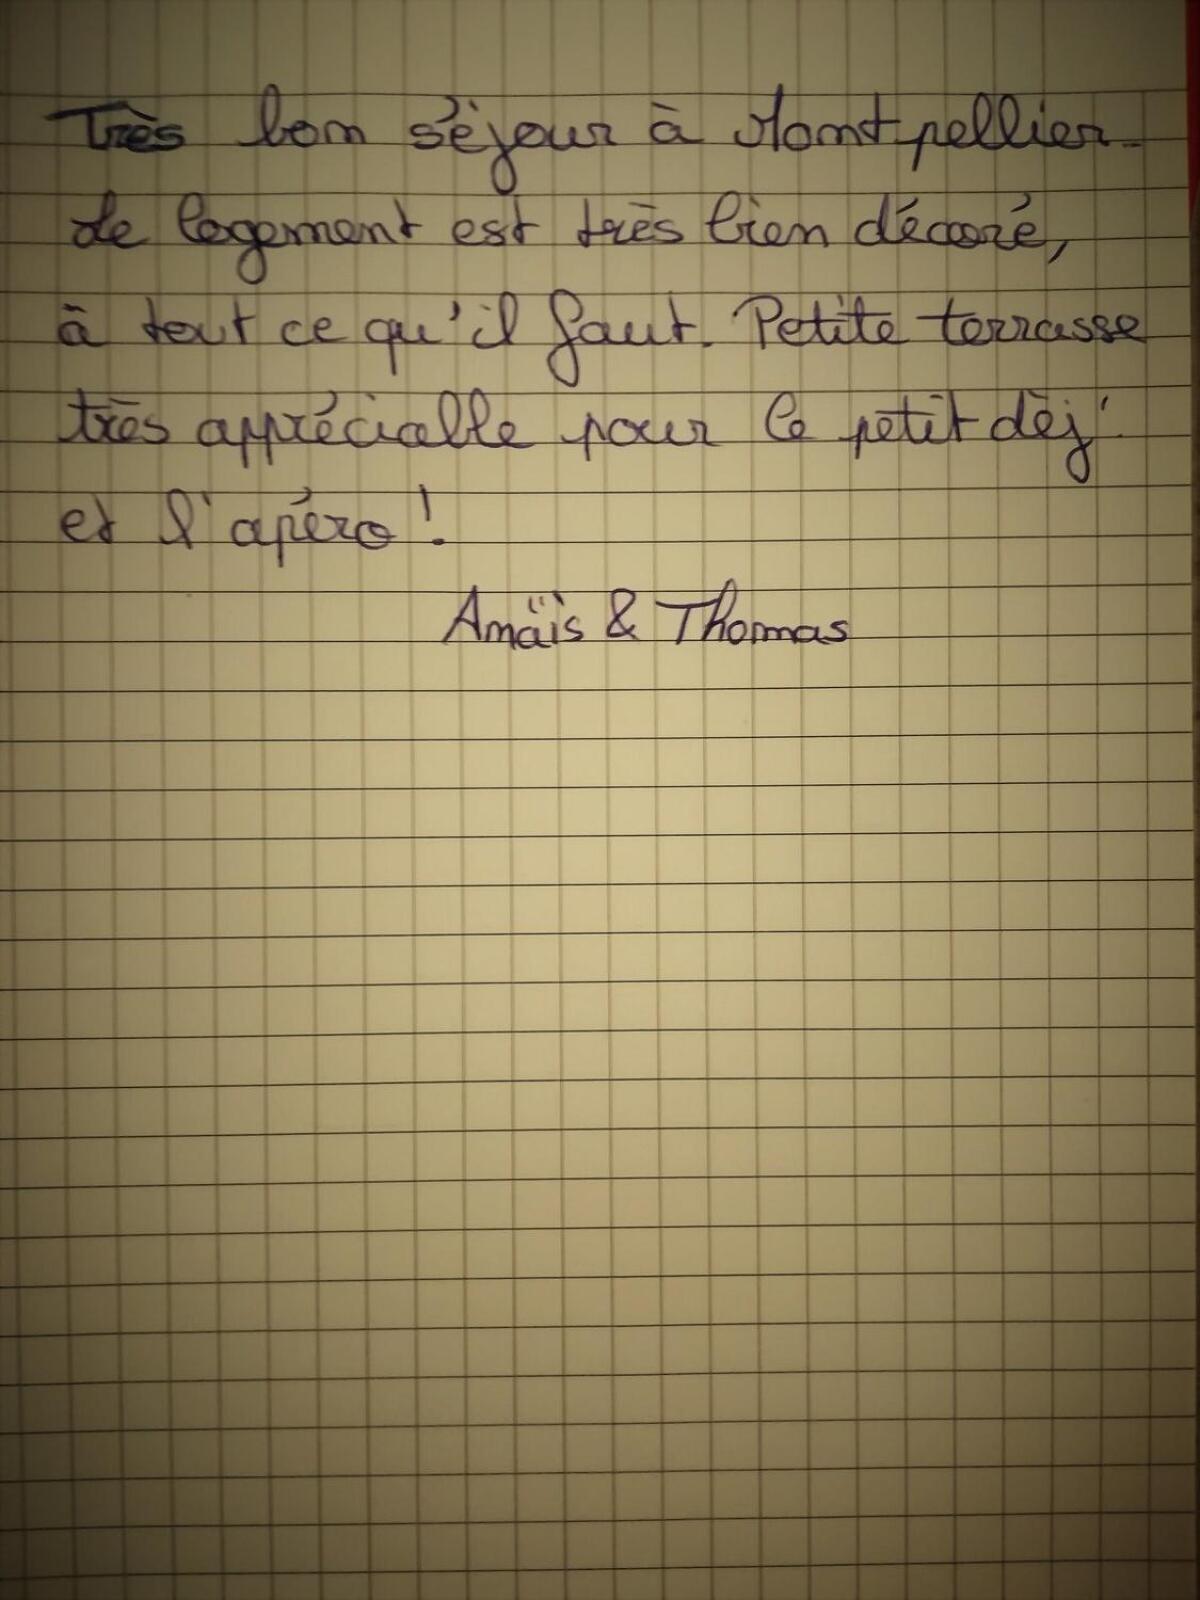 Très bon séjour à Montpellier.
Le logement est très bien décoré,
à tout ce qu'il faut. Petite terrasse
très appréciable pour le petit dèj'
et l'apéro !
Anaïs & Thomas